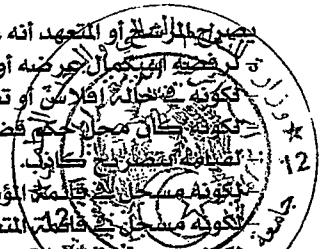 يصرح المرشح أو المتعهد أنه
- لرفضه استكمال عرضه أو
- لكونه في حالة إفلاس أو
- لكونه كان محل حكم
- لقيامه بتصريح كاذب.
- لكونه مسجل في قائمة
- لكونه مسجل في قائمة
وزارة
12
جامعة
12